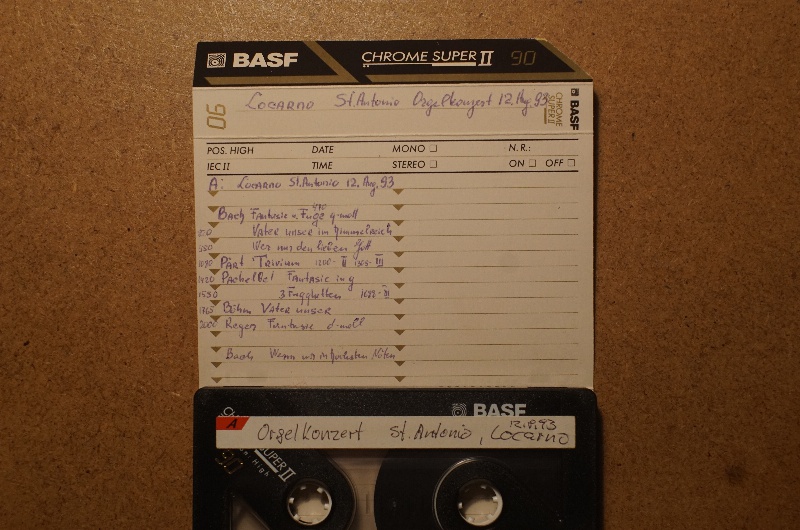 BASF CHROME SUPER II 90
90 Locarno St. Antonio Orgelkonzert 12. Aug. 93 CHROME SUPER II BASF
POS. HIGH DATE MONO N.R.:
IEC II TIME STEREO ON OFF
A: Locarno St. Antonio 12. Aug. 93
Bach Fantasie u. Fuge g-moll
Vater unser im Himmelreich
550 Wer nur den lieben Gott
1090 Pärt Trivium 1200-II III
1420 Pachelbel Fantasie in g
1550 3 Fughetten
1765 Böhm Vater unser
2000 Reger Fantasie d-moll
Bach Wenn wir in höchsten Nöten
BASF
A Orgelkonzert St. Antonio, Locarno
12.8.93
SUPER II
90 High